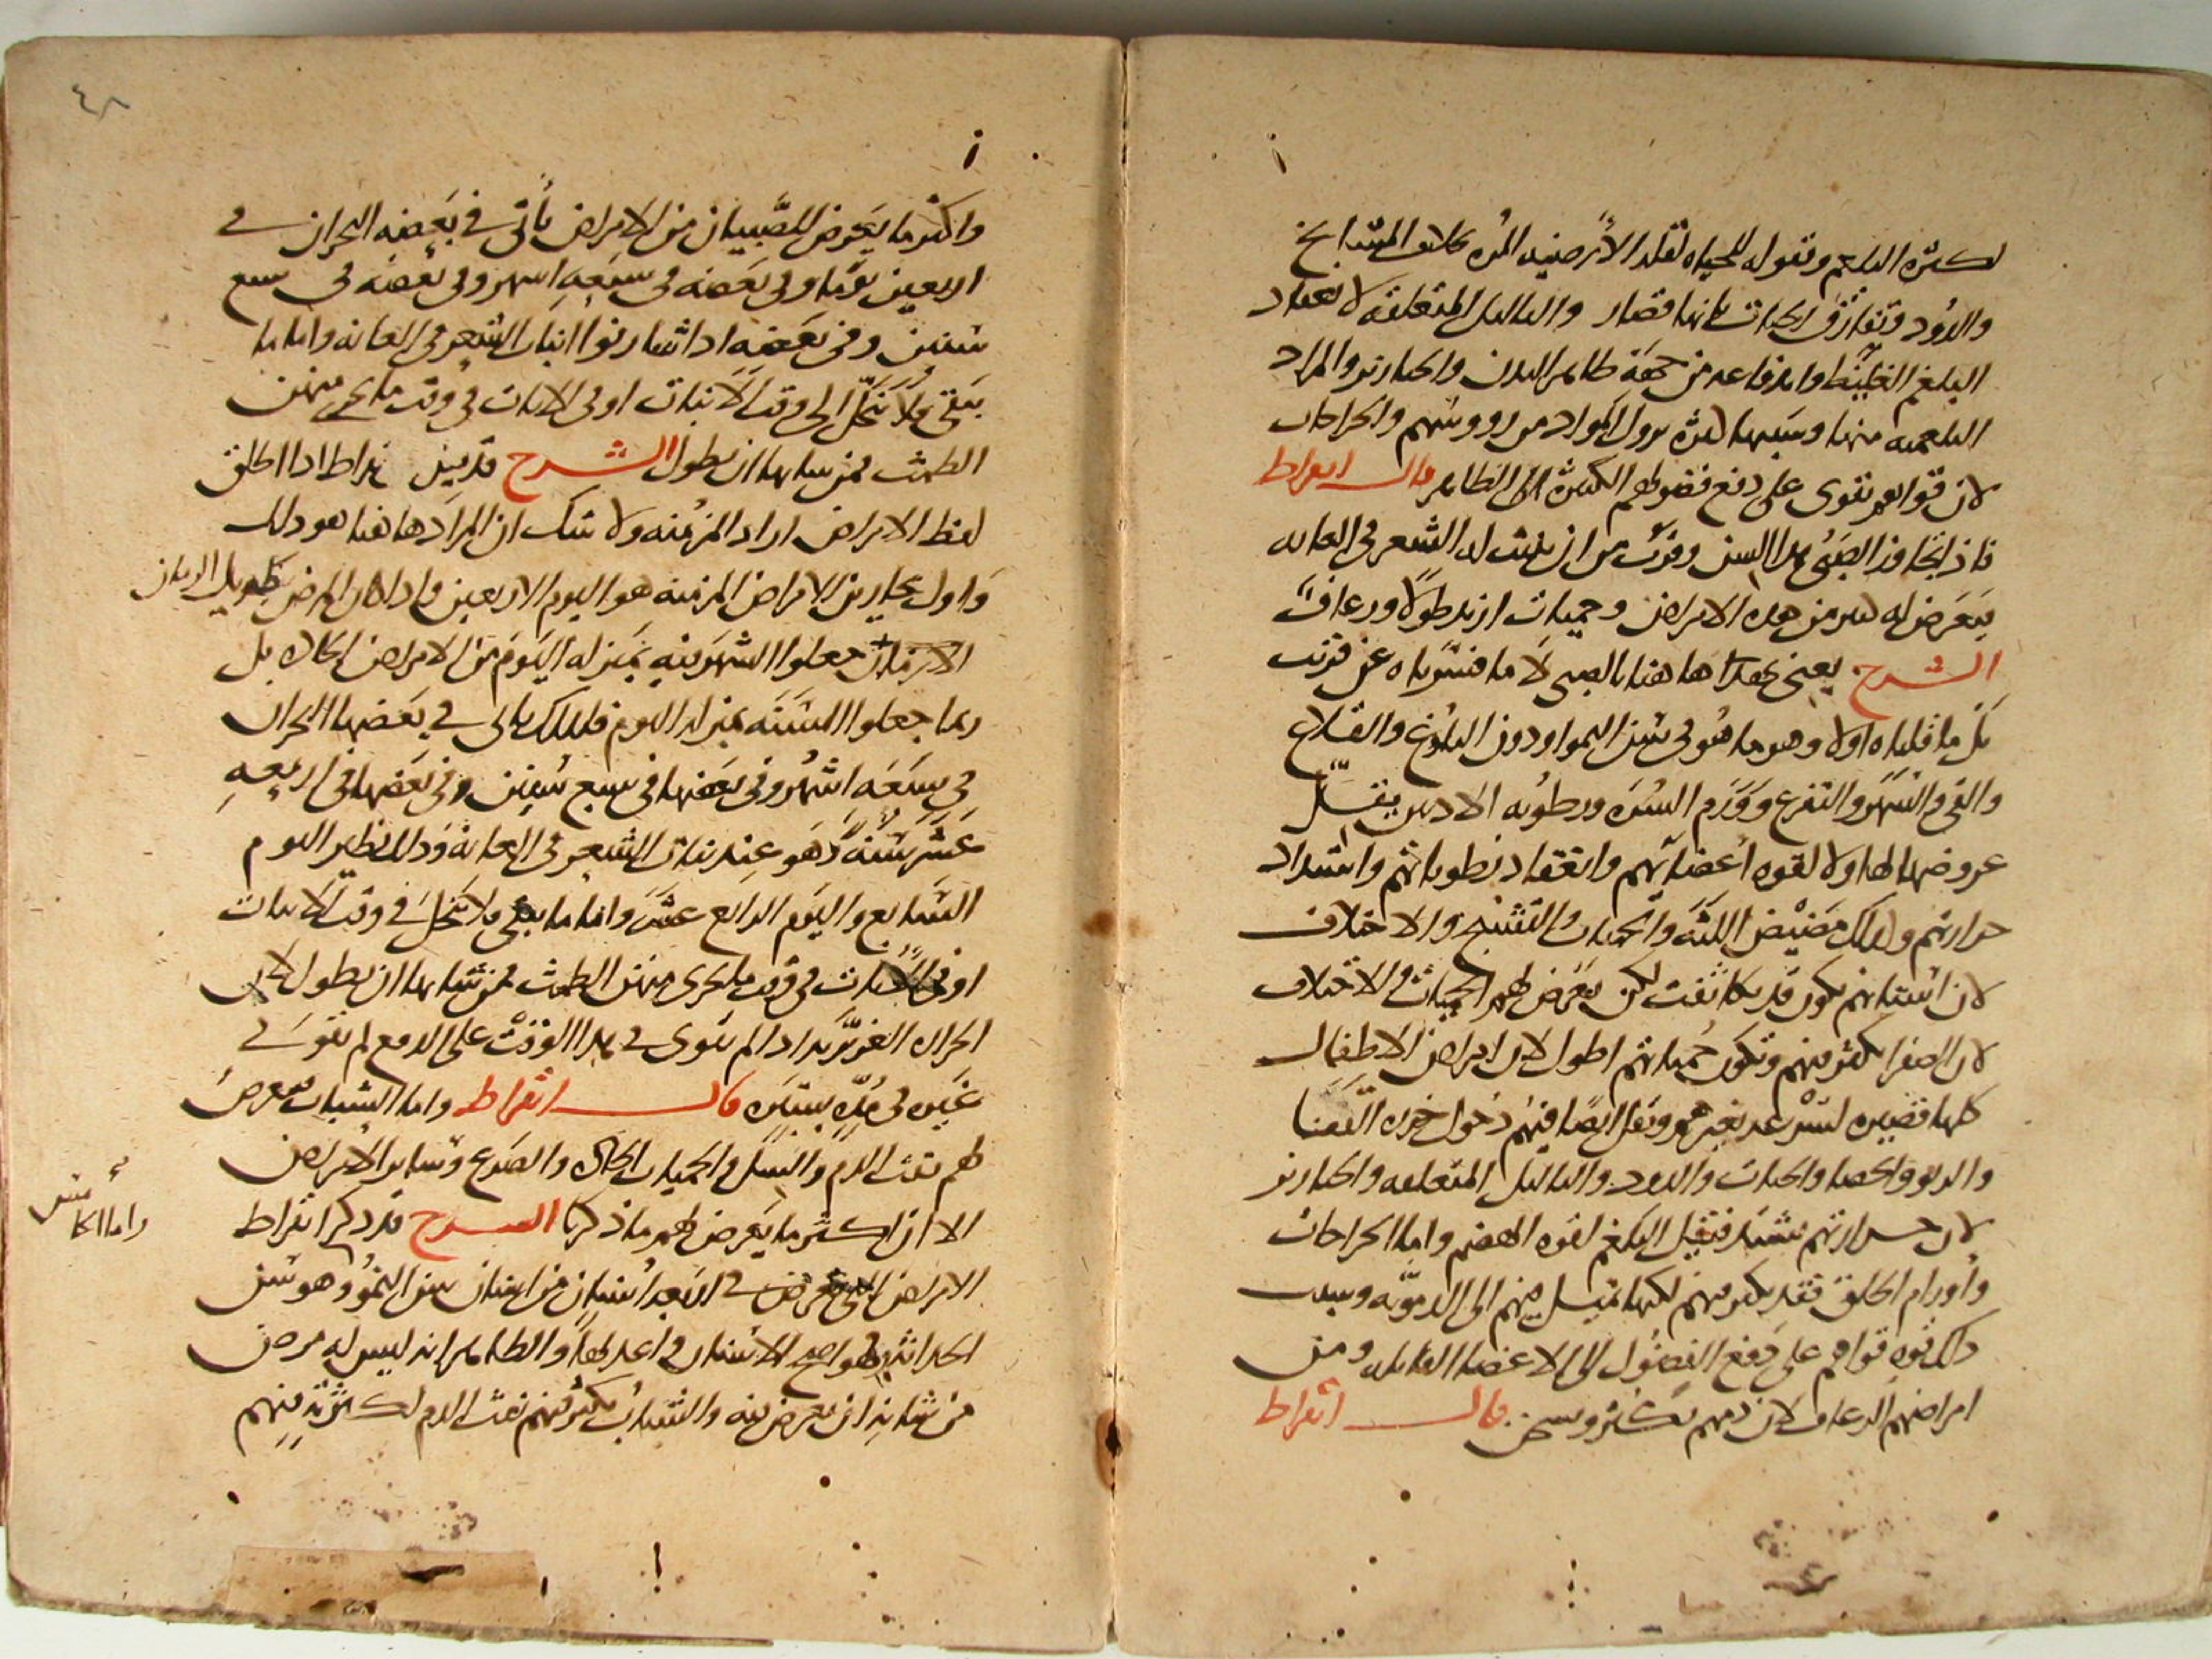 لكثره البلغم وتقوله للحياه لقله الأرضيه المره بخلاف المشايخ
والدود وتفارق الحيات بانها قصار والثاليل المتعلقه لانعقاد
البلغم الغليظ واندفاعه من جهة ظاهر البدن والخنازير والمراد
البلغميه منها وسببها كثره نزول المواد من رووسهم والخراجات
لان قواهم تقوى على دفع فضولهم الكثيره الى الظاهر قال ابقراط
فاذا تجاوز الصبي هذا السن وقرب من ان ينبت له الشعر في العانه
فيعرض له كثير من هذه الامراض وحميات ازيد طولا ورعاف
الشرح يعني بقراط هاهنا بالصبي لا ما فسرناه عن قرب
بل ما قلناه اولا وهو ما هو في سن النمو او دون البلوغ والقلاع
والقي والسهر والتفزع وورم السره ورطوبه الاذنين يقل
عروضها لهاولا لقوه اعضائهم وانعقاد رطوباتهم واشتداد
حرارتهم وكذلك مضيض اللثه والحميات والتشنج والاختلاف
لان اسنانهم تكون قد تكاثفت لكن يعرض لهم الحميات والاختلاف
لان الصفرا تكثر منهم وتكون حمياتهم اطول لان امراض الاطفال
كلها قصيره لسرعه تغيرهم ويقل ايضا فيهم دخول خرزه القفا
والربو والحصا والحيات والدود والثاليل المتعلقه والخنازير
لان حرارتهم تشتد فتقلل البلغم لقوه الهضم واما الخراجات
واورام الحلق فقد يكثر منهم لكنها تميل منهم الى الدمويه وسبب
ذلك قوه قواهم على دفع الفضول الى الاعضا القابله ومن
امراضهم الرعاف لان دمهم يكثر ويسخن قال ابقراط
٤٨
واكثر ما يعرض للصبيان من الامراض ياتي في بعضه البحران في
اربعين يوما وفي بعضه في سبعه اشهر وفي بعضه في سبع
سنين وفي بعضه اذا شارفوا انبات الشعر في العانه واما ما
يبقى ولا ينحل الى وقت الانبات او في الاناث في وقت ما يجري منهن
الطمث فمن شانها ان يطول الشرح قد بين بقراط اذا اطلق
لفظ الامراض اراد المزمنه ولا شك ان المراد هاهنا هو ذلك
واول بحارين الامراض المزمنه هو اليوم الاربعين واذا كان المرض طويل الزمان
الازمان جعلوا الشهر فيه بمنزله اليوم من الامراض الحاده بل
ربما جعلوا السنه بمنزله اليوم فلذلك ياتي في بعضها البحران
في سبعه اشهر وفي بعضها في سبع سنين وفي بعضها في اربعه
عشر سنه وهو عند نبات الشعر في العانه وذلك نظير اليوم
السابع واليوم الرابع عشر واما ما يبقى ولا ينحل في وقت الانبات
او في الاناث في وقت ما يجري منهن الطمث فمن شانها ان يطول لان
الحراره الغريزيه اذا لم تقوى في هذا الوقت على الدفع لم تقو في
غيره في مده يسيره قال ابقراط واما الشباب فيعرض
لهم نفث الدم والسل والحميات الحاده والصرع وسائر الامراض
الا ان اكثر ما يعرض لهم ما ذكرنا الشرح قد ذكر ابقراط
الامراض التي تعرض في ابعد اسنان من اسنان سن النمو وهو سن
الحداثه فهو اصح الاسنان واعدلها والظاهر انه ليس له مرض
من شانه ان يعرض فيه والشباب يكثر فيهم نفث الدم لكثرته فيهم
واما الخامس